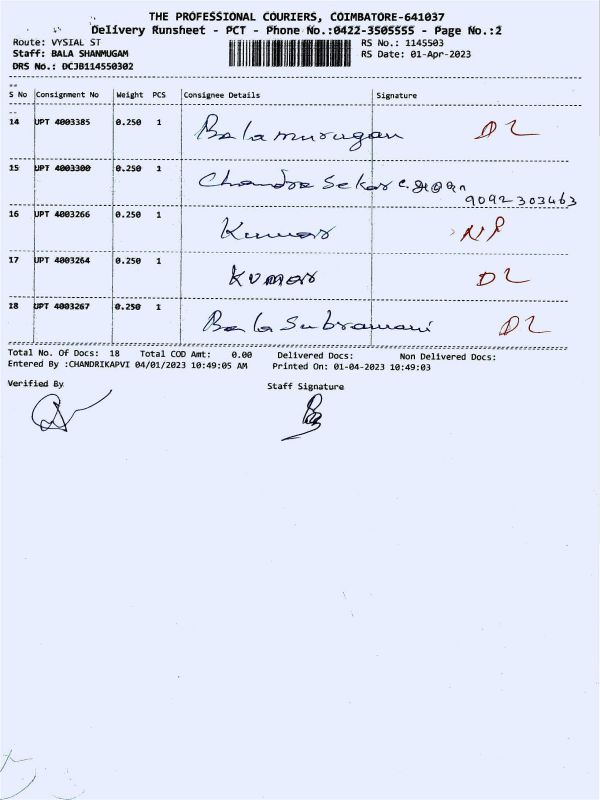 THE PROFESSIONAL COURIERS, COIMBATORE-641037
Delivery Runsheet - PCT - Phone No.:0422-3505555 - Page No.:2
Route: VYSIAL ST RS No.: 1145503
Staff: BALA SHANMUGAM RS Date: 01-Apr-2023
DRS No.: DCJB114550302
S No Consignment No Weight PCS Consignee Details Signature
14 UPT 4003385 0.250 1 Balamurugan DL
15 UPT 4003300 0.250 1 Chandra Sekar
9092303463
16 UPT 4003266 0.250 1 Kumar NP
17 UPT 4003264 0.250 1 Kumar DL
18 UPT 4003267 0.250 1 Bala Subramani DL
Total No. Of Docs: 18 Total COD Amt: 0.00 Delivered Docs: Non Delivered Docs:
Entered By :CHANDRIKAPVI 04/01/2023 10:49:05 AM Printed On: 01-04-2023 10:49:03
Verified By Staff Signature